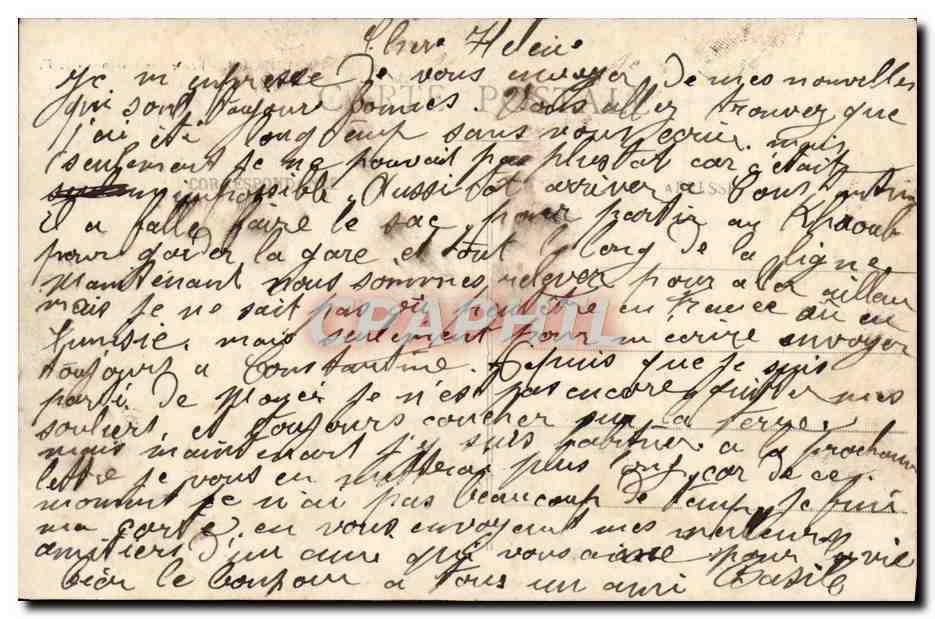 Chere Helene
Je m'enpresse de vous envoyer de mes nouvelles
qui sont toujour bonnes. Vous allez trouvez que
CARTE POSTALE
j'ai été longtemp sans vous ecrire. mais
seulement je ne pouvait pas plus tot car c'était
impossible. Aussi tot arriver a Constantine
CORRESPONDANCE
ADRESSE
il a fallu faire le sac pour partir au Khroub
pour garder la gare et tout le long de la ligne
Maintenant nous sommes relever pour aller ailleur
mais je ne sait pas où peutêtre en France ou en
CPAPHIL
Tunisie, mais seulement pour m'ecrire envoyer
toujours a Constantine. Depuis que je suis
parti de je n'ai pas encore quitter mes
souliers et toujours coucher sur la terre.
mais maintenant j'y suis habituer. a la prochaine
lettre je vous en metterai plus long car de ce
moment je n'ai pas beaucoup de temp. Je fini
ma carte en vous envoyent mes meilleurs
amitiers d'un ami qui vous aime pour la vie
bien le bonjour a tous un ami Basile